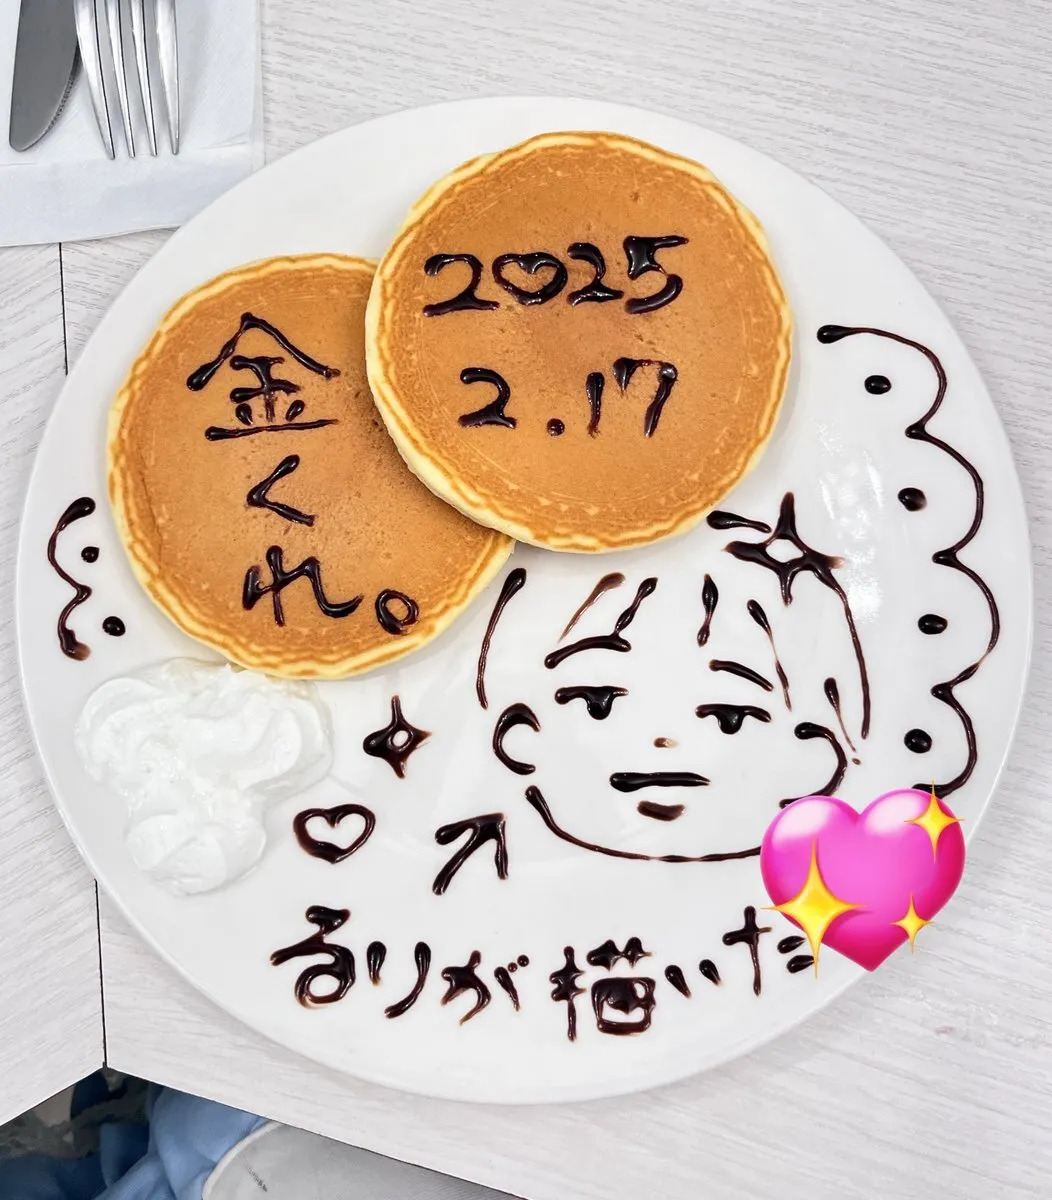 2025
2.17
金くれ。
るりが描いた